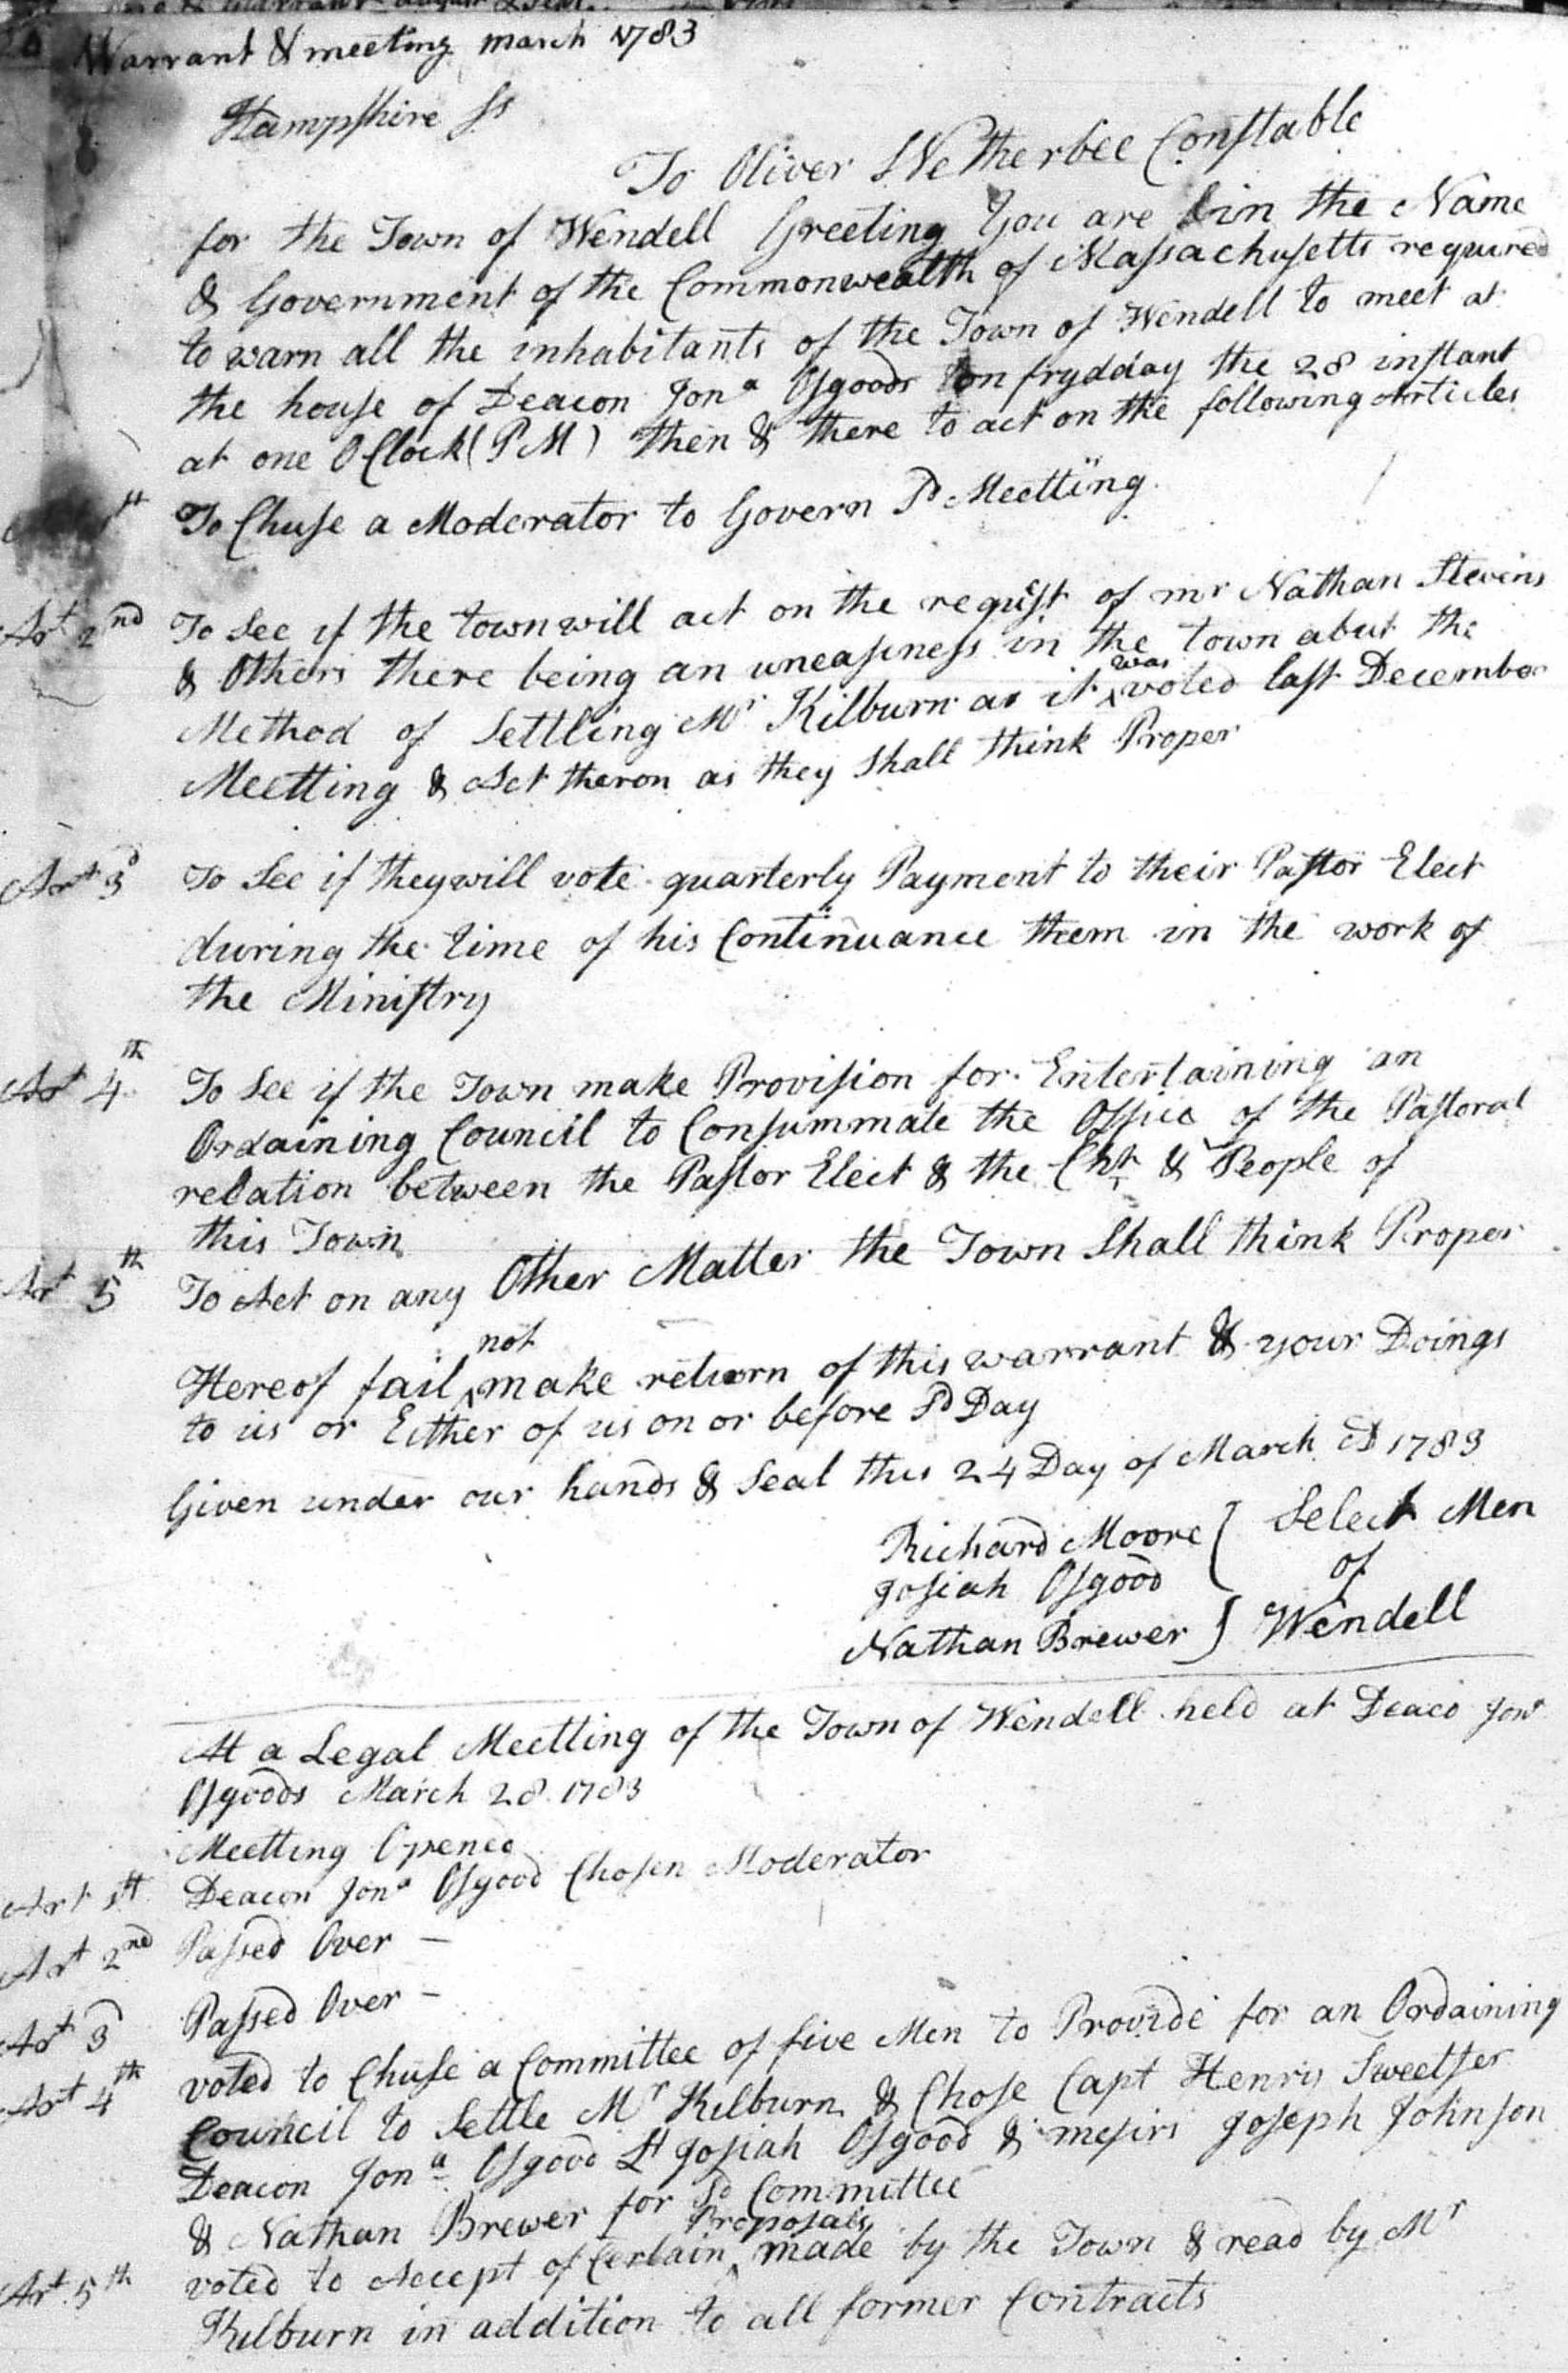 Warrant & meeting march 1783
Hampshire ss
To Oliver Wetherbee Constable
for the Town of Wendell Greeting You are in the Name
& Government of the Commonwealth of Massachusetts required
to warn all the inhabitants of the Town of Wendell to meet at
the house of Deacon Jonª Osgoods on frydday the 28 instant
at one OClock (PM) then & there to act on the following Articles
1st To Chuse a Moderator to Govern Sd Meetting
Art 2nd To See if the town will act on the request of mr Nathan Stevens
& Others there being an uneasiness in the town abut the
Method of Settling Mr Kilburn as it was voted last December
Meetting & Act theron as they Shall think Proper
Art 3d To See if they will vote quarterly Payment to their Pastor Elect
during the time of his Continuance them in the work of
the Ministry
Art 4th To See if the Town make Provision for Entertaining an
Ordaining Council to Consummate the Office of the Pastoral
relation between the Pastor Elect & the Chh & People of
this Town
Art 5th To Act on any Other Matter the Town Shall think Proper
Hereof fail not make return of this warrant & your Doings
to us or Either of us on or before Sd Day
Given under our hands & Seal this 24 Day of March AD 1783
Richard Moore } Select Men
Josiah Osgood of
Nathan Brewer } Wendell
At a Legal Meetting of the Town of Wendell held at Deaco Jonª
Osgoods March 28 1783
Meetting Opened
Art 1st Deacon Jonª Osgood Chosen Moderator
Art 2nd Passed Over —
Art 3d Passed Over —
Art 4th voted to Chuse a Committee of five Men to Provide for an Ordaining
Council to Settle Mr Kilburn & Chose Capt Henry Sweetser
Deacon Jonª Osgood Lt Josiah Osgood & messrs Joseph Johnson
& Nathan Brewer for Sd Committee
Art 5th voted to Accept of Certain Proposals made by the Town & read by Mr
Kilburn in addition to all former Contracts